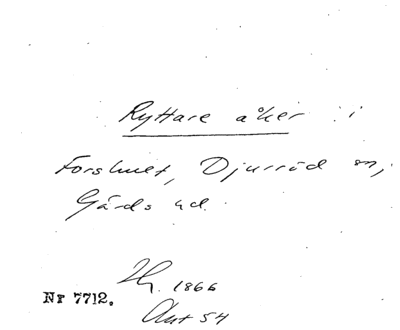 Ryttare åker i
Forshult, Djurröd sn,
Gärds hd.
1866
Nr 7712.
Akt 54